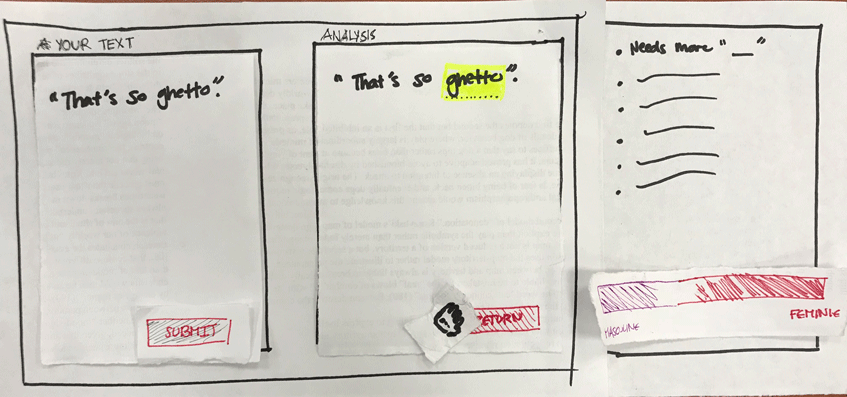 # YOUR TEXT
"That's so ghetto."
SUBMIT
ANALYSIS
"That's so ghetto".
ETURN
• Needs more "__"
MASCULINE
FEMINIE